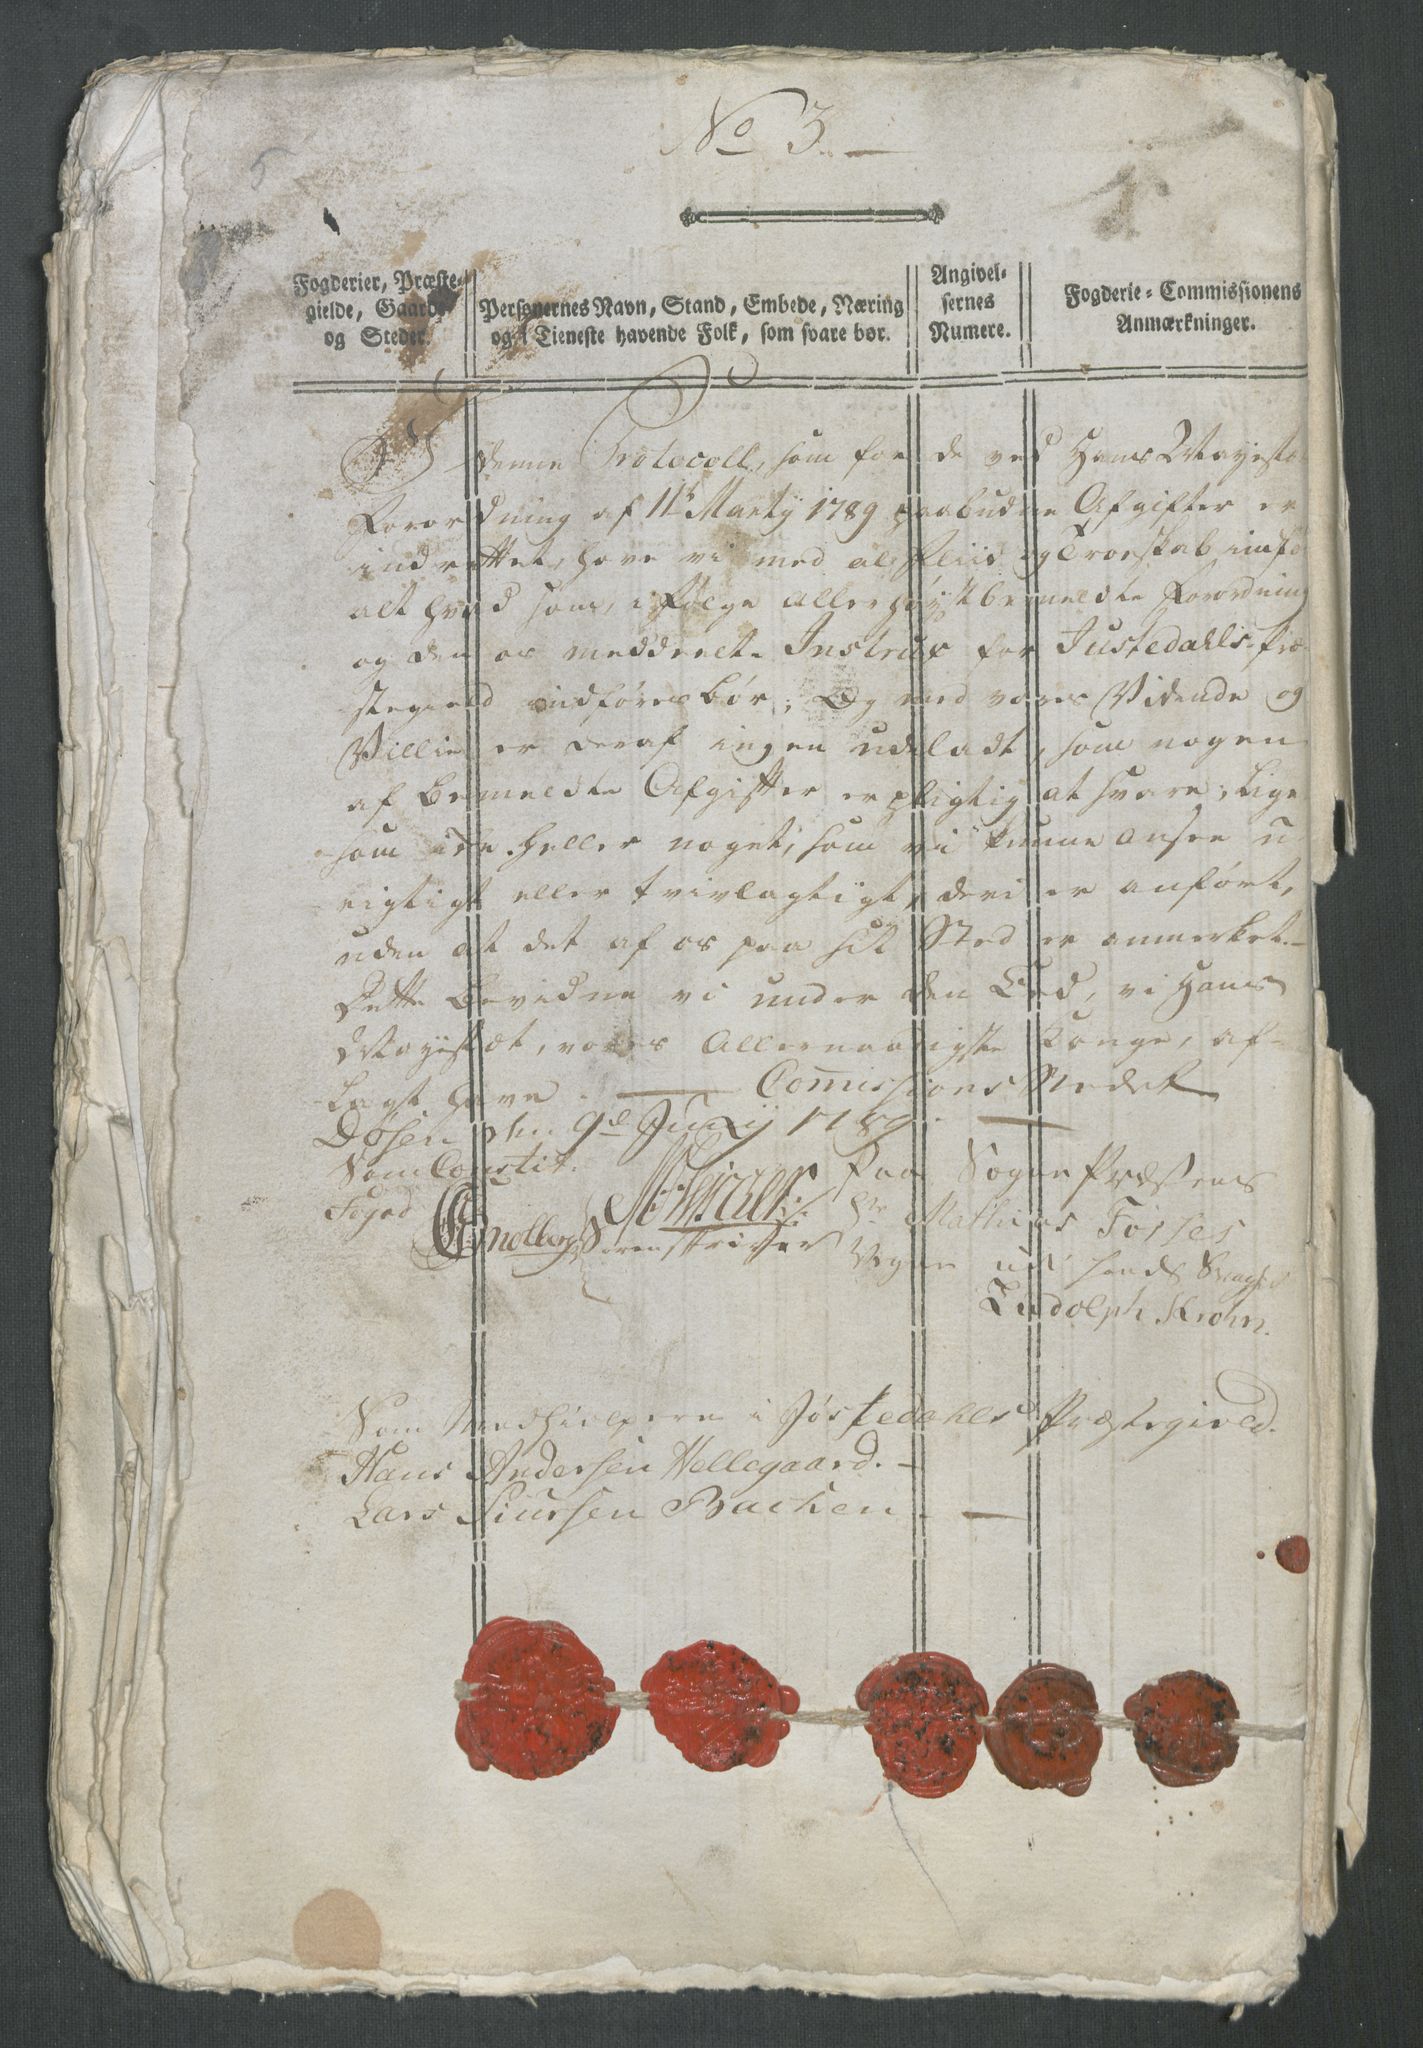 No 3.
Fogderier, Præste-
gielde, Gaarde
og Steder.
Personernes Navn, Stand, Embede, Næring
og i Tieneste havende Folk, som svare bør.
Angivel-
sernes
Numere.
Fogderie-Commissionens
Anmærkninger.
I denne Protocoll, som for de ved Hans Mayestæ
Forordning af 11te Martij 1789 paabudne Afgifter er
indrettet, have vi med al Fliis og Troeskab indfø
alt hvad som, i Følge allerhøystbemeldte Forordning
og den os meddeelte Instrux for Justedahls-Præ-
stegield indføres bør; Og med vores Vidende og
Villie er deraf ingen udeladt, som nogen
af bemeldte Afgifter er pligtig at svare; lige
som ikke heller noget, som vi kunne ansee u-
rigtigt eller tvivlagtigt, deri er anført,
uden at det af os paa sit Sted er anmerket.-
Dette bevidne vi under den Eed, vi Hans
Mayestæt, vores Allernaadigste Konge, af-
lagt have. Commissions Stedet
Døsen den 9de Junij 1789.
Som Constit.
Foged
Sorenskriver
Paa Sogne Præstens
Hr Mathias Forses
Vegne
Ludolph Krohn.
Som Medhielpere i Jøstedahls Præstegield.
Hans Andersen Hellegaard.
Lars Siursen Backen